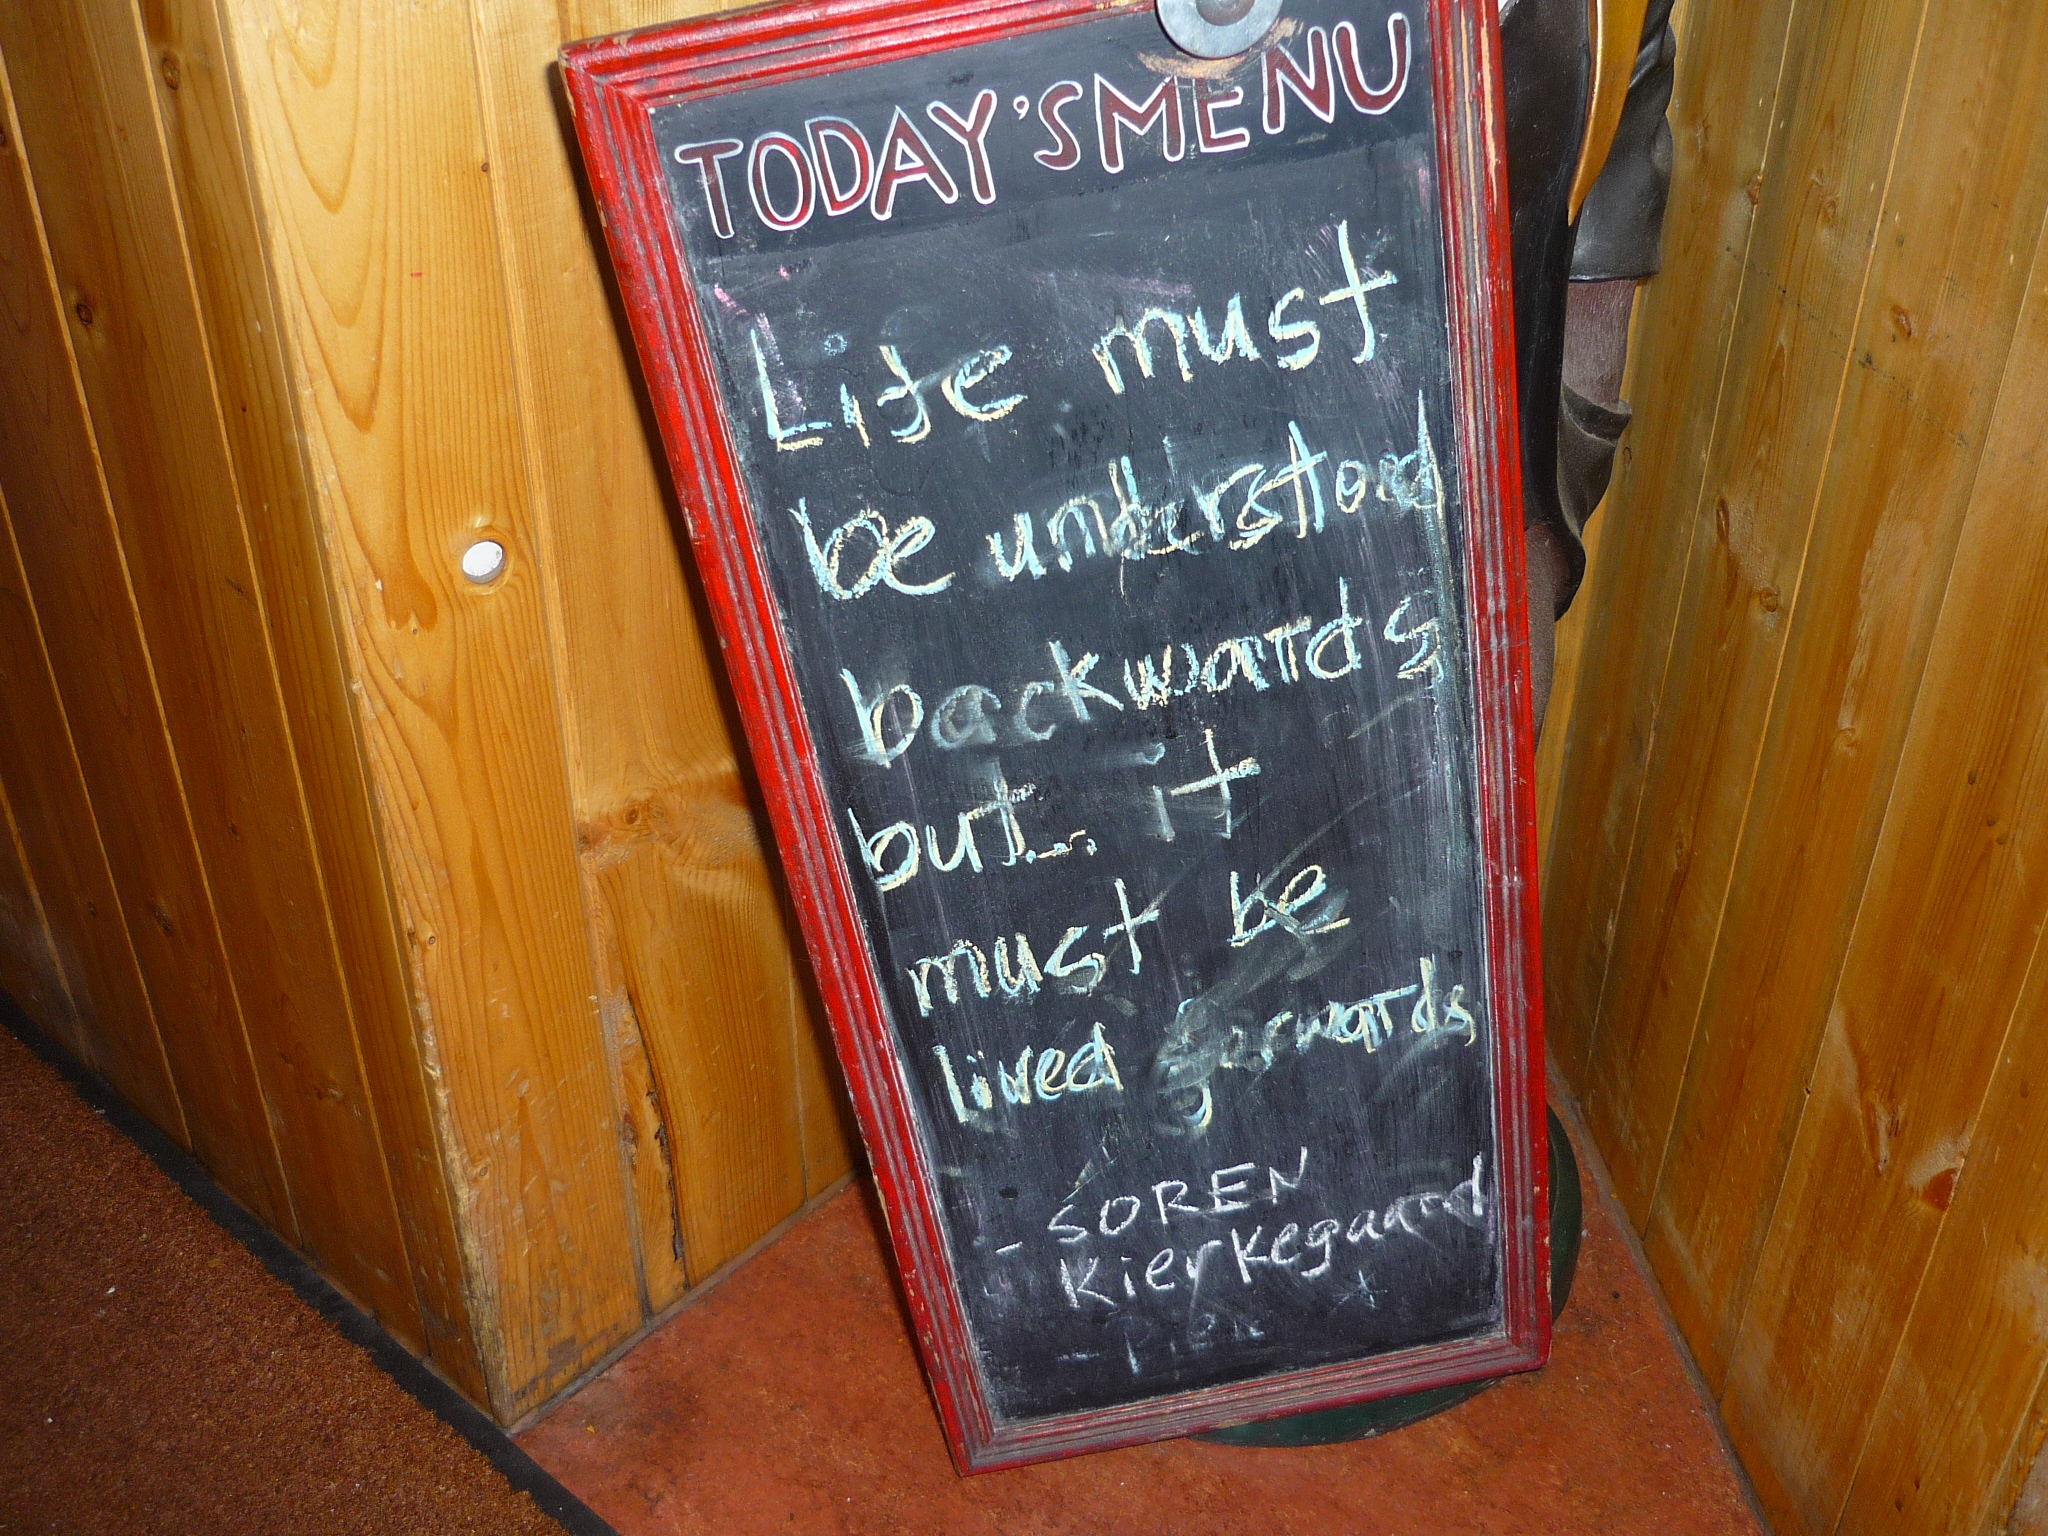 TODAY'S MENU
Life must
be understood
backwards
but... it
must be
lived forwards
- SOREN
Kierkegaard